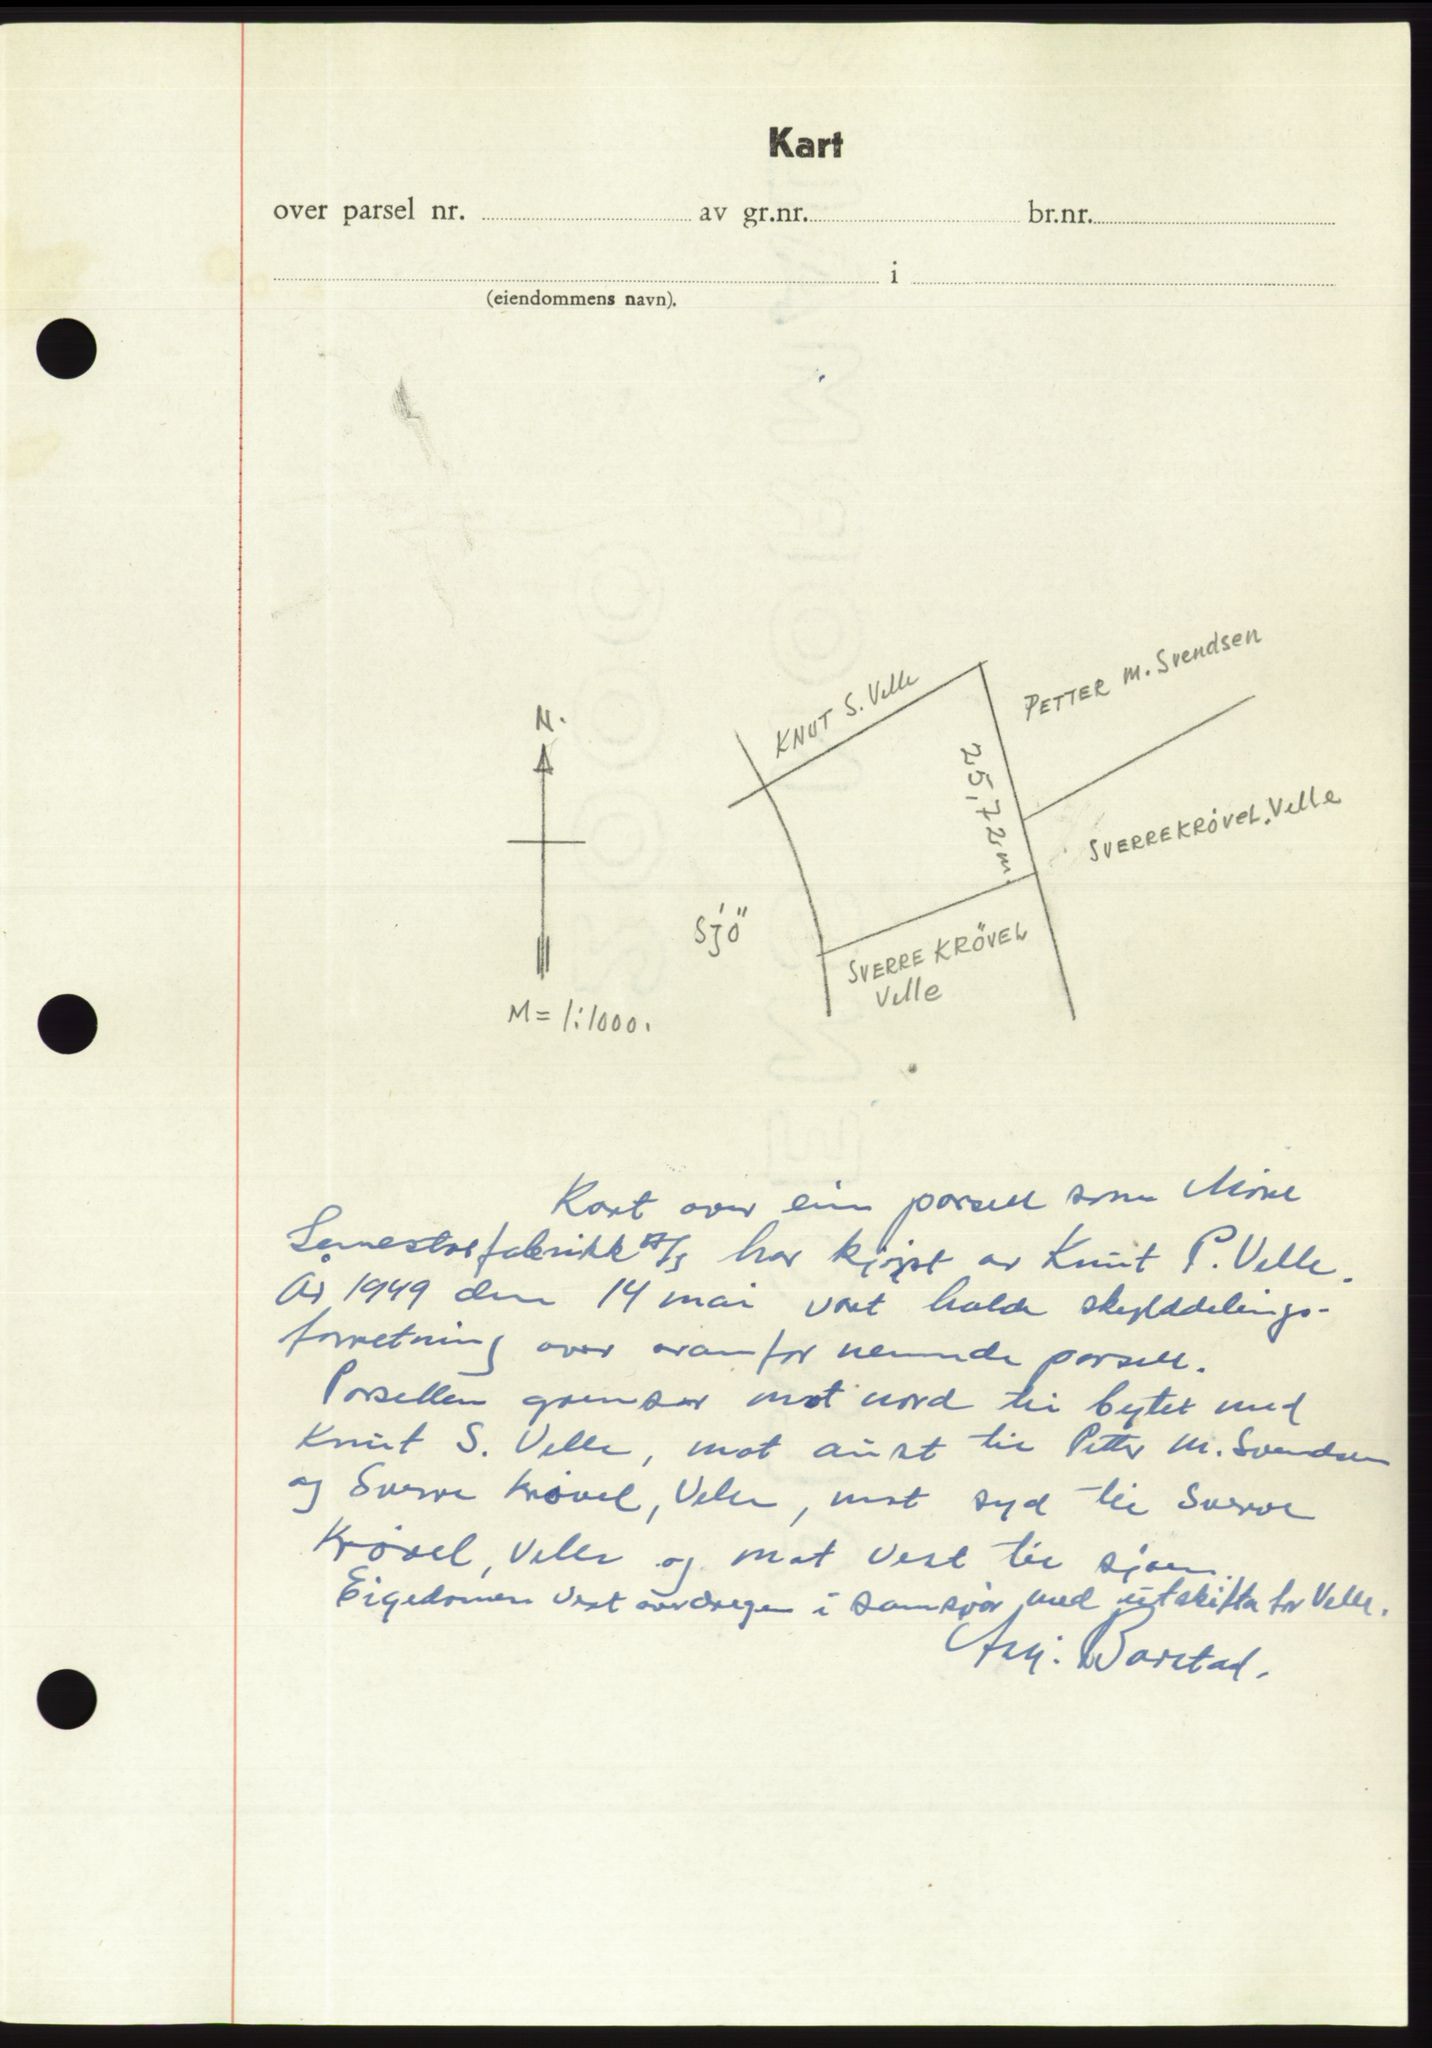 Kart
over parsel nr. av gr.nr. br.nr.
i
(eiendommens navn).
N.
M = 1:1000.
KNUT S. Velle
PETTER M. Svendsen
25,72 m.
SVERRE KRÖVEL, Velle
Sjö
SVERRE KRÖVEL
Velle
Kart over ein parsell som Möre
fabrikk A/S har kjöpt av Knut P. Velle.
År 1949 den 14 mai vart halde skylddelings-
forretning over ovanfor nemnde parsell.
Parsellen grenser mot nord til bytet med
Knut S. Velle, mot aust til Petter M. Svendsen
og Sverre Krövel, Velle, mot syd til Sverre
Krövel, Velle og mot vest til sjöen.
Eigedomen vert i samsvar med utskifta for Velle.
Barstad.